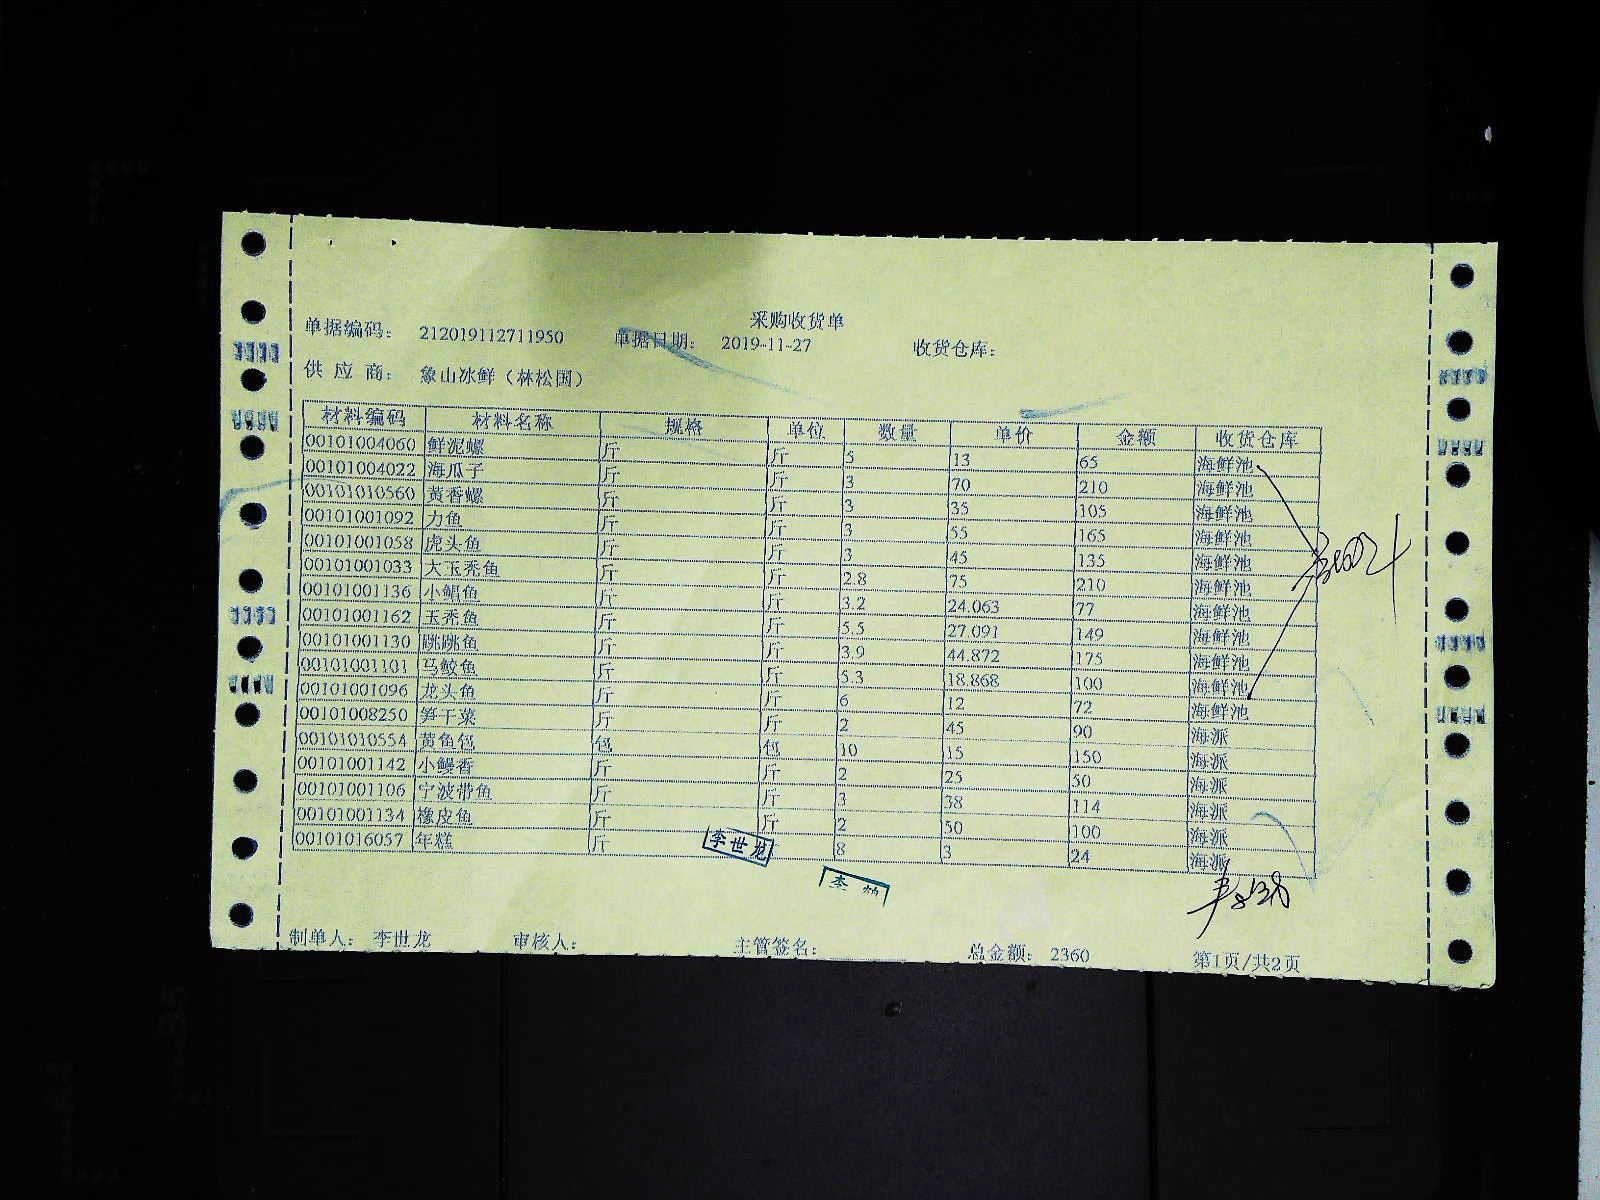 采购收货单
单据编码： 212019112711950 单据日期： 2019-11-27 收货仓库：
供 应 商： 象山冰鲜（林松国）
材料编码 材料名称 规格 单位 数量 单价 金额 收货仓库
00101004060 鲜泥螺 斤 斤 5 13 65 海鲜池
00101004022 海瓜子 斤 斤 3 70 210 海鲜池
00101010560 黄香螺 斤 斤 3 35 105 海鲜池
00101001092 力鱼 斤 斤 3 55 165 海鲜池
00101001058 虎头鱼 斤 斤 3 45 135 海鲜池
00101001033 大玉秃鱼 斤 斤 2.8 75 210 海鲜池
00101001136 小鲳鱼 斤 斤 3.2 24.063 77 海鲜池
00101001162 玉秃鱼 斤 斤 5.5 27.091 149 海鲜池
00101001130 跳跳鱼 斤 斤 3.9 44.872 175 海鲜池
00101001101 马鲛鱼 斤 斤 5.3 18.868 100 海鲜池
00101001096 龙头鱼 斤 斤 6 12 72 海鲜池
00101008250 笋干菜 斤 斤 2 45 90 海派
00101010554 黄鱼包 包 包 10 15 150 海派
00101001142 小鳗香 斤 斤 2 25 50 海派
00101001106 宁波带鱼 斤 斤 3 38 114 海派
00101001134 橡皮鱼 斤 斤 2 50 100 海派
00101016057 年糕 斤 8 3 24 海派
李世龙
李
制单人： 李世龙 审核人： 主管签名： 总金额： 2360 第1页/共2页